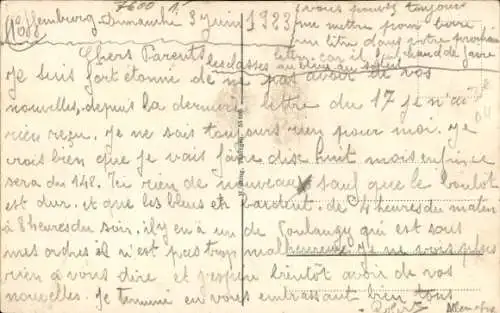 7600 1.
Offenburg Dimanche 3 Juin 1923
vous pouvez toujours
me mettre pour livre
un litre dans votre prochaine
lettre car il fait chaud de faire
les classes au bleus au soleil
Chers Parents
Je suis fort étonné de ne pas avoir de vos
nouvelles, depuis la dernière lettre du 17 je n'ai
rien reçu. Je ne sais toujours rien pour moi. Je
crois bien que je vais faire dix huit mois enfin ce
sera du 148. Ici rien de nouveau sauf que le boulot
est dur. et que les bleus en bardent. de 4 heures du matin
à 8 heures du soir. il y en à un de Coulangy qui est sous
mes ordres il n'est pas trop malheureux. Je ne vois plus
rien à vous dire et j'espère bientôt avoir de vos
nouvelles. Je termine en vous embrassant bien tous
Robert